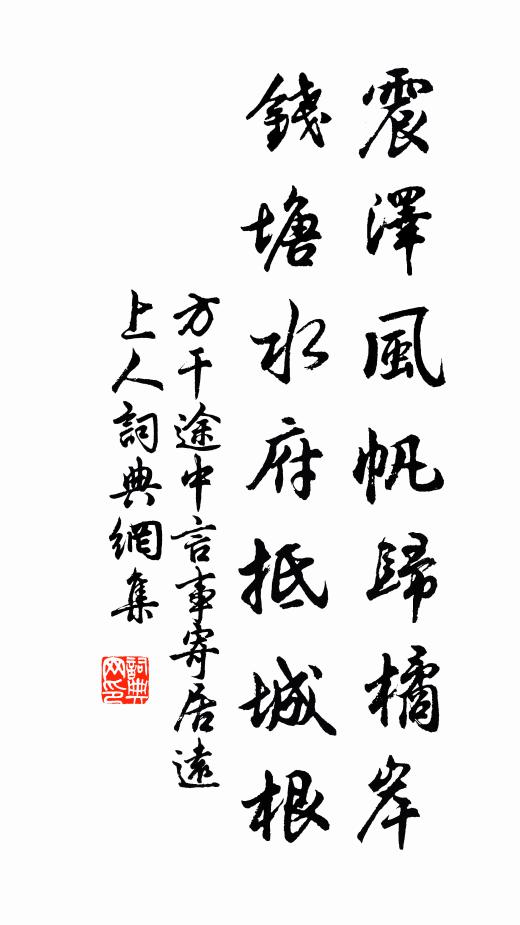 震澤風帆歸橘岸
錢塘水府抵城根
方干途中言事寄居遠
上人詞典網集
詞典网印